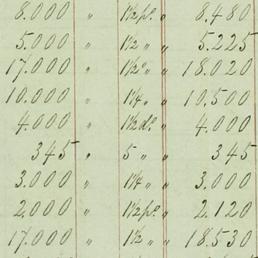 8.000 " 1½ p% " 8.480
5.000 " 1½ " " 5.225
17.000 " 1½ " " 18.020
10.000 " 1¼ " " 10.500
4.000 " 1½ d.º " 4.000
345 " 5 " " 345
3.000 " 1¼ " " 3.000
2.000 " 1½ p% " 2.120
17.000 " 1½ " " 18.530